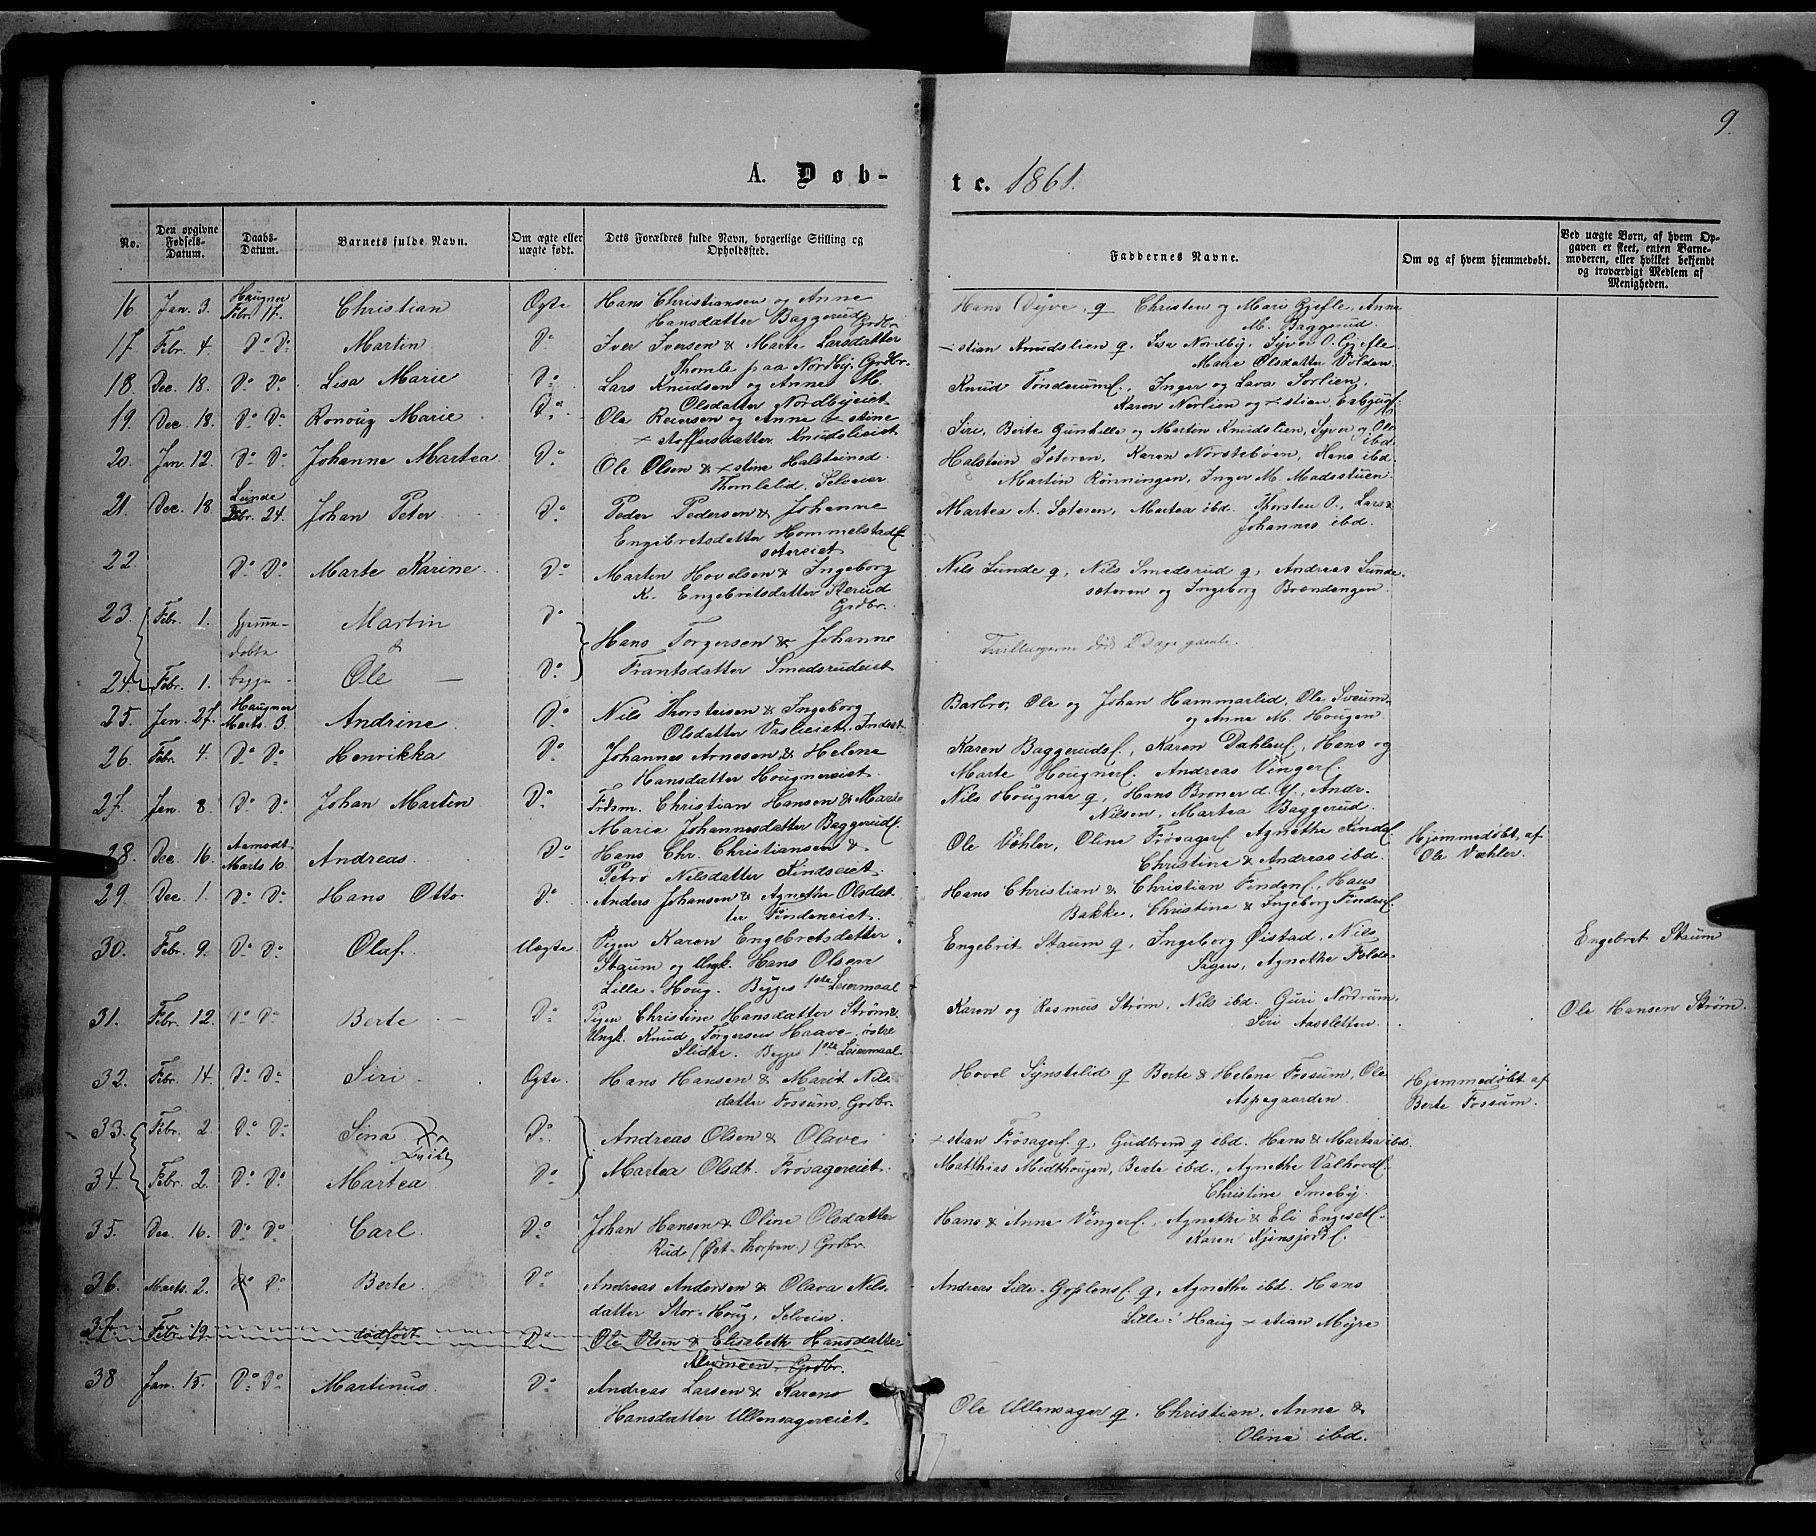 9.
A. Døb-
te. 1861.
No.
Den opgivne Fødsels-Datum.
Daabs-Datum.
Barnets fulde Navn.
Om ægte eller uægte født.
Dets Forældres fulde Navn, borgerlige Stilling og Opholdssted.
Faddernes Navne.
Om og af hvem hjemmedøbt.
Ved uægte Børn, af hvem Opgaven er skeet, enten Barnemoderen, eller hvilket bekjendt og troværdigt Medlem af Menigheden.
16. Jan. 3. Haugner Febr. 17. Christian Ægte Hans Christiansen og Anne
Hansdatter Baggerud Grdbr.
Hans Dyve, g Christen og Mari Gjefle, Anne
M. Baggerud.
17. Febr. 4. Do Do Martin Do Iver Iversen & Marte Larsdatter
Thomle paa Nordby, Grdbr.
÷stian Knudslien g. Lisa Nordby, Syver O. Gjefle
Marie Olsdatter Volden.
18. Dec. 18. Do Do Lisa Marie Do Lars Knudsen og Anne M.
Olsdatter Nordbyeiet
Knud Tønderumf., Inger og Lava Sorlien,
Karen Norlien og ÷stian
19. Dec. 18. Do Do Ronoug Marie Do Ole Reiersen og Anne ÷stine
÷stoffersdatter Knudslieiet
Siri, Berte Gunhilde og Martin Knudslien, Syver og Ole
ibd.
20. Jan. 12. Do Do Johanne Martea Do Ole Olsen & ÷stine Halsteinsd.
Thomlelid. Selveier
Halstein Sæteren, Karen Norstebøen, Hans ibd.
Martin Rønningen, Inger M. Madsstuen.
21. Dec. 18 Lunde Febr. 24. Johan Peter Do Peder Pedersen & Johanne
Engebretsdatter Hommelstad
sætereiet
Martea A. Sæteren, Martea ibd. Thorsten O., Lars &
Johannes ibd.
22. Do Do Marte Karine Do Martin Hovelsen & Ingeborg
K. Engebretsdatter Sterud
Grdbr.
Nils Lunde g, Nils Smedsrud g, Andreas Lunde-
sæteren og Ingeborg Brændengen.
23. Febr. 1. hjemme- Martin Do
døbte &
24. Febr. 1. begge Ole Do
Hans Torgersen & Johanne
Frantsdatter Smedsrudeiet
Tvillingerne døde 2 Dage gamle.
25. Jan. 27. Haugner Marts 3. Andrine Do Nils Thorstensen & Ingeborg
Olsdatter Vaslieiet, Inderst
Barbro, Ole og Johan Hammarlid, Ole Sveum
og Anne M. Hougen.
26. Febr. 4. Do Do Henrikka Do Johannes Arnesen & Helene
Hansdatter Hougnereiet
Karen Baggerudsf., Karen Dahlenf., Hans og
Marte Hougnerf. Andreas Vingerf.
27. Jan. 8 Do Do Johan Martin Do Frdsm. Christian Hansen & Marie
Marie Johannesdatter Baggerudf.
Nils Hougner g, Hans Broner d. Y., Andr.
Nilsen, Martea Baggerud.
28. Dec. 16. Aamodt Marts 10. Andreas Do Hans Chr. Christiansen &
Petro Nilsdatter Findseiet
Ole Væhler, Oline Frøsagerf. Agnethe
Christine & Andreas ibd.
Hjemmedøbt af
Ole Væhler.
29. Dec. 1. Do Do Hans Otto Do Anders Johansen & Agnethe Olsdat
ter Findeneiet.
Hans Christian & Christian Findenf., Hans
Bakke, Christine & Ingeborg Findenf.
30. Febr. 9. Do Do Olaf. Uægte Pigen Karen Engebretsdatter
Staum og Ungk. Hans Olsen
Lille-Houg. Begges 1ste Leiermaal
Engebrit Staum g, Ingeborg Øistad, Nils
Sagen, Agnethe Folde.
Engebret Staum
31. Febr. 12. Do Do Berte Do Pigen Christine Hansdatter Strøm &
Ungk. Knud Torgersen Haave, østre
Slidre. Begges 1ste Leiermaal
Karen og Rasmus Strøm, Nils ibd. Guri Nordrum,
Siri Aassletten.
Ole Hansen Strøm.
32. Febr. 14. Do Do Siri Ægte. Hans Hansen & Marit Nils
datter Fossum, Grdbr.
Hovel Synstelid g Berte & Helene Fossum, Ole
Aspegaarden.
Hjemmedøbt af
Berte Fossum.
33. Febr. 2. Do Do Sina Do
34. Febr. 2. Do Do Martea Do
Andreas Olsen & Olave
Martea Olsdt. Frøsagereiet
÷stian Frøsagerf. g, Gudbrend g ibd. Hans & Martea ibd.
Matthias Midthougen, Berte ibd., Agnethe Valhovdf.
Christine Smeby.
35. Dec. 16. Do Do Carl. Do Johan Hansen & Oline Olsdatter
Rud (Øst-Thorpen.) Grdbr.
Hans & Anne Vingerf., Agnethe & Eli Engesetf.
Karen Kjensjordf.
36. Marts. 2. Do Do Berte. Do Andreas Andersen & Olava Nils-
datter Stor-Houg, Selveier.
Andreas Lille-Goplenf. g, Agnethe ibd. Hans
Lille-Haug ÷stian Myre
37. Febr. 19. dødfødt Do Ole Olsen & Elisabeth Hansdatter
Grdbr.
38 Jan. 15. Do Do Martinus. Do Andreas Larsen & Karens
Hansdatter Ullensagereiet
Ole Ullensager g. Christian, Anne &
Olina ibd.